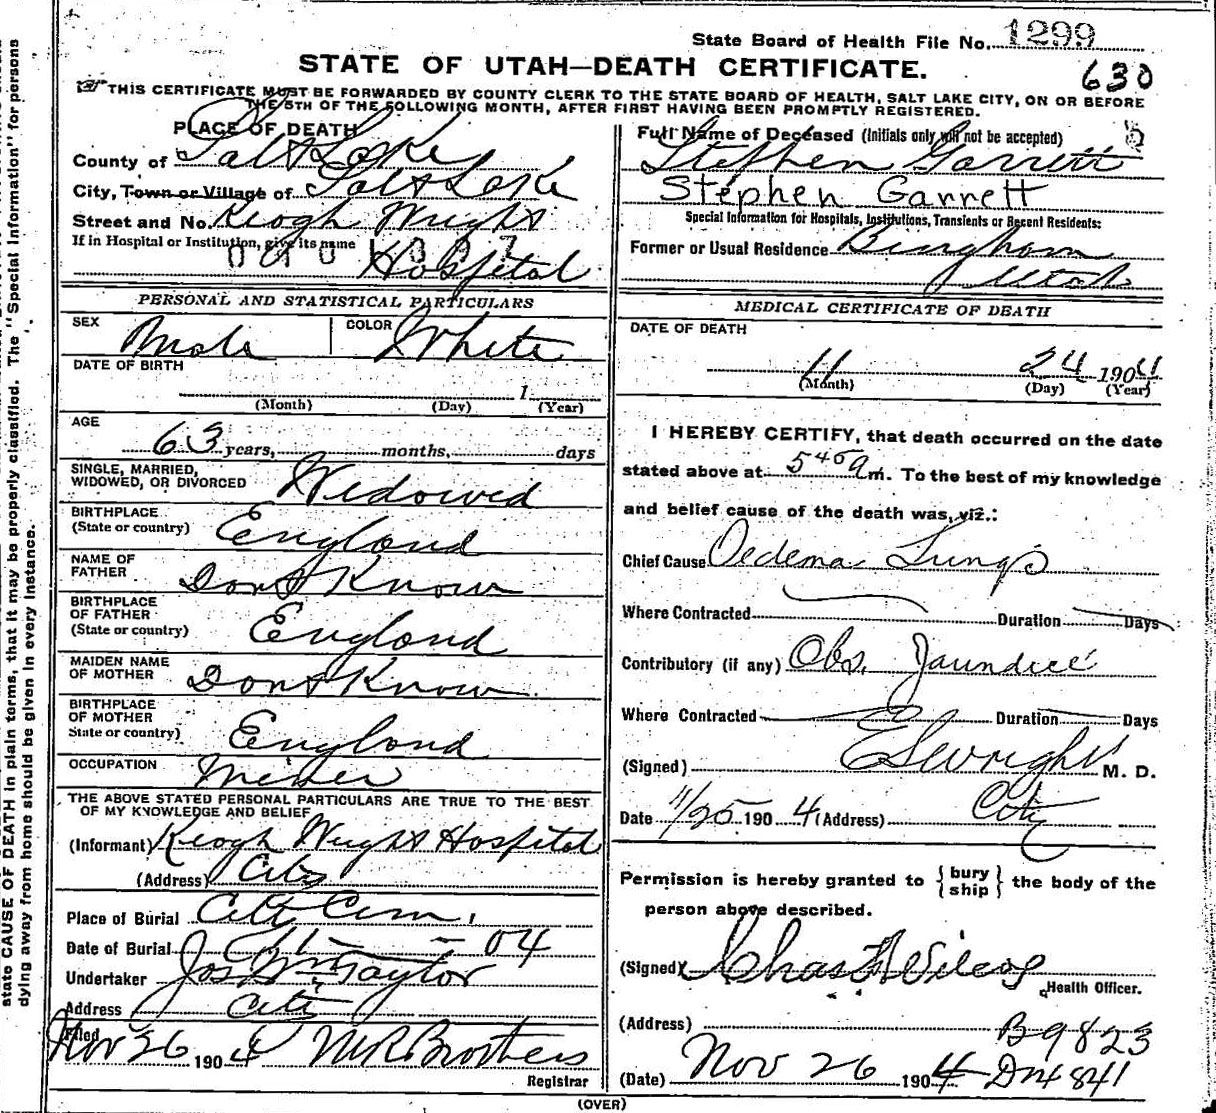 state CAUSE OF DEATH in plain terms, that it may be properly classified. The "Special Information" for persons
dying away from home should be given in every instance.
State Board of Health File No. 1299
STATE OF UTAH—DEATH CERTIFICATE.
630
THIS CERTIFICATE MUST BE FORWARDED BY COUNTY CLERK TO THE STATE BOARD OF HEALTH, SALT LAKE CITY, ON OR BEFORE
THE 5TH OF THE FOLLOWING MONTH, AFTER FIRST HAVING BEEN PROMPTLY REGISTERED.
PLACE OF DEATH
County of Salt Lake
City, Town or Village of Salt Lake
Street and No. Keogh Wright
If in Hospital or Institution, give its name
Hospital
Full Name of Deceased (Initials only will not be accepted)
Stephen Garrett
Stephen Garrett
Special Information for Hospitals, Institutions, Transients or Recent Residents:
Former or Usual Residence Bingham
Utah
PERSONAL AND STATISTICAL PARTICULARS
SEX Male COLOR White
DATE OF BIRTH
1
(Month) (Day) (Year)
AGE
63 years, months, days
SINGLE, MARRIED,
WIDOWED, OR DIVORCED Widowed
BIRTHPLACE
(State or country) England
NAME OF
FATHER Dont Know
BIRTHPLACE
OF FATHER
(State or country) England
MAIDEN NAME
OF MOTHER Dont Know
BIRTHPLACE
OF MOTHER
State or country) England
OCCUPATION Miner
THE ABOVE STATED PERSONAL PARTICULARS ARE TRUE TO THE BEST
OF MY KNOWLEDGE AND BELIEF
(Informant) Keogh Wright Hospital
(Address) City
Place of Burial City Cem.
Date of Burial 11 — — 04
Undertaker Jos Wm Taylor
Address City
Filed Nov 26 1904 M R Brothers
Registrar
MEDICAL CERTIFICATE OF DEATH
DATE OF DEATH
11 24 1904
(Month) (Day) (Year)
I HEREBY CERTIFY, that death occurred on the date
stated above at 5 45 a m. To the best of my knowledge
and belief cause of the death was, viz.:
Chief Cause Oedema Lungs
Where Contracted Duration Days
Contributory (if any) Obs. Jaundice
Where Contracted Duration Days
(Signed) E S Wright M. D.
Date 11/25 1904 (Address) City
Permission is hereby granted to {bury
ship} the body of the
person above described.
(Signed) Chas F Wilcox
Health Officer.
(Address) B9823
(Date) Nov 26 1904 Dn4841
(OVER)